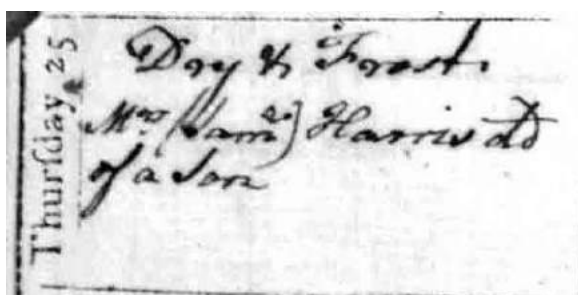 Thurſday 25
Dry & Frost.
Mrs (Saml) Harris dd
of a Son